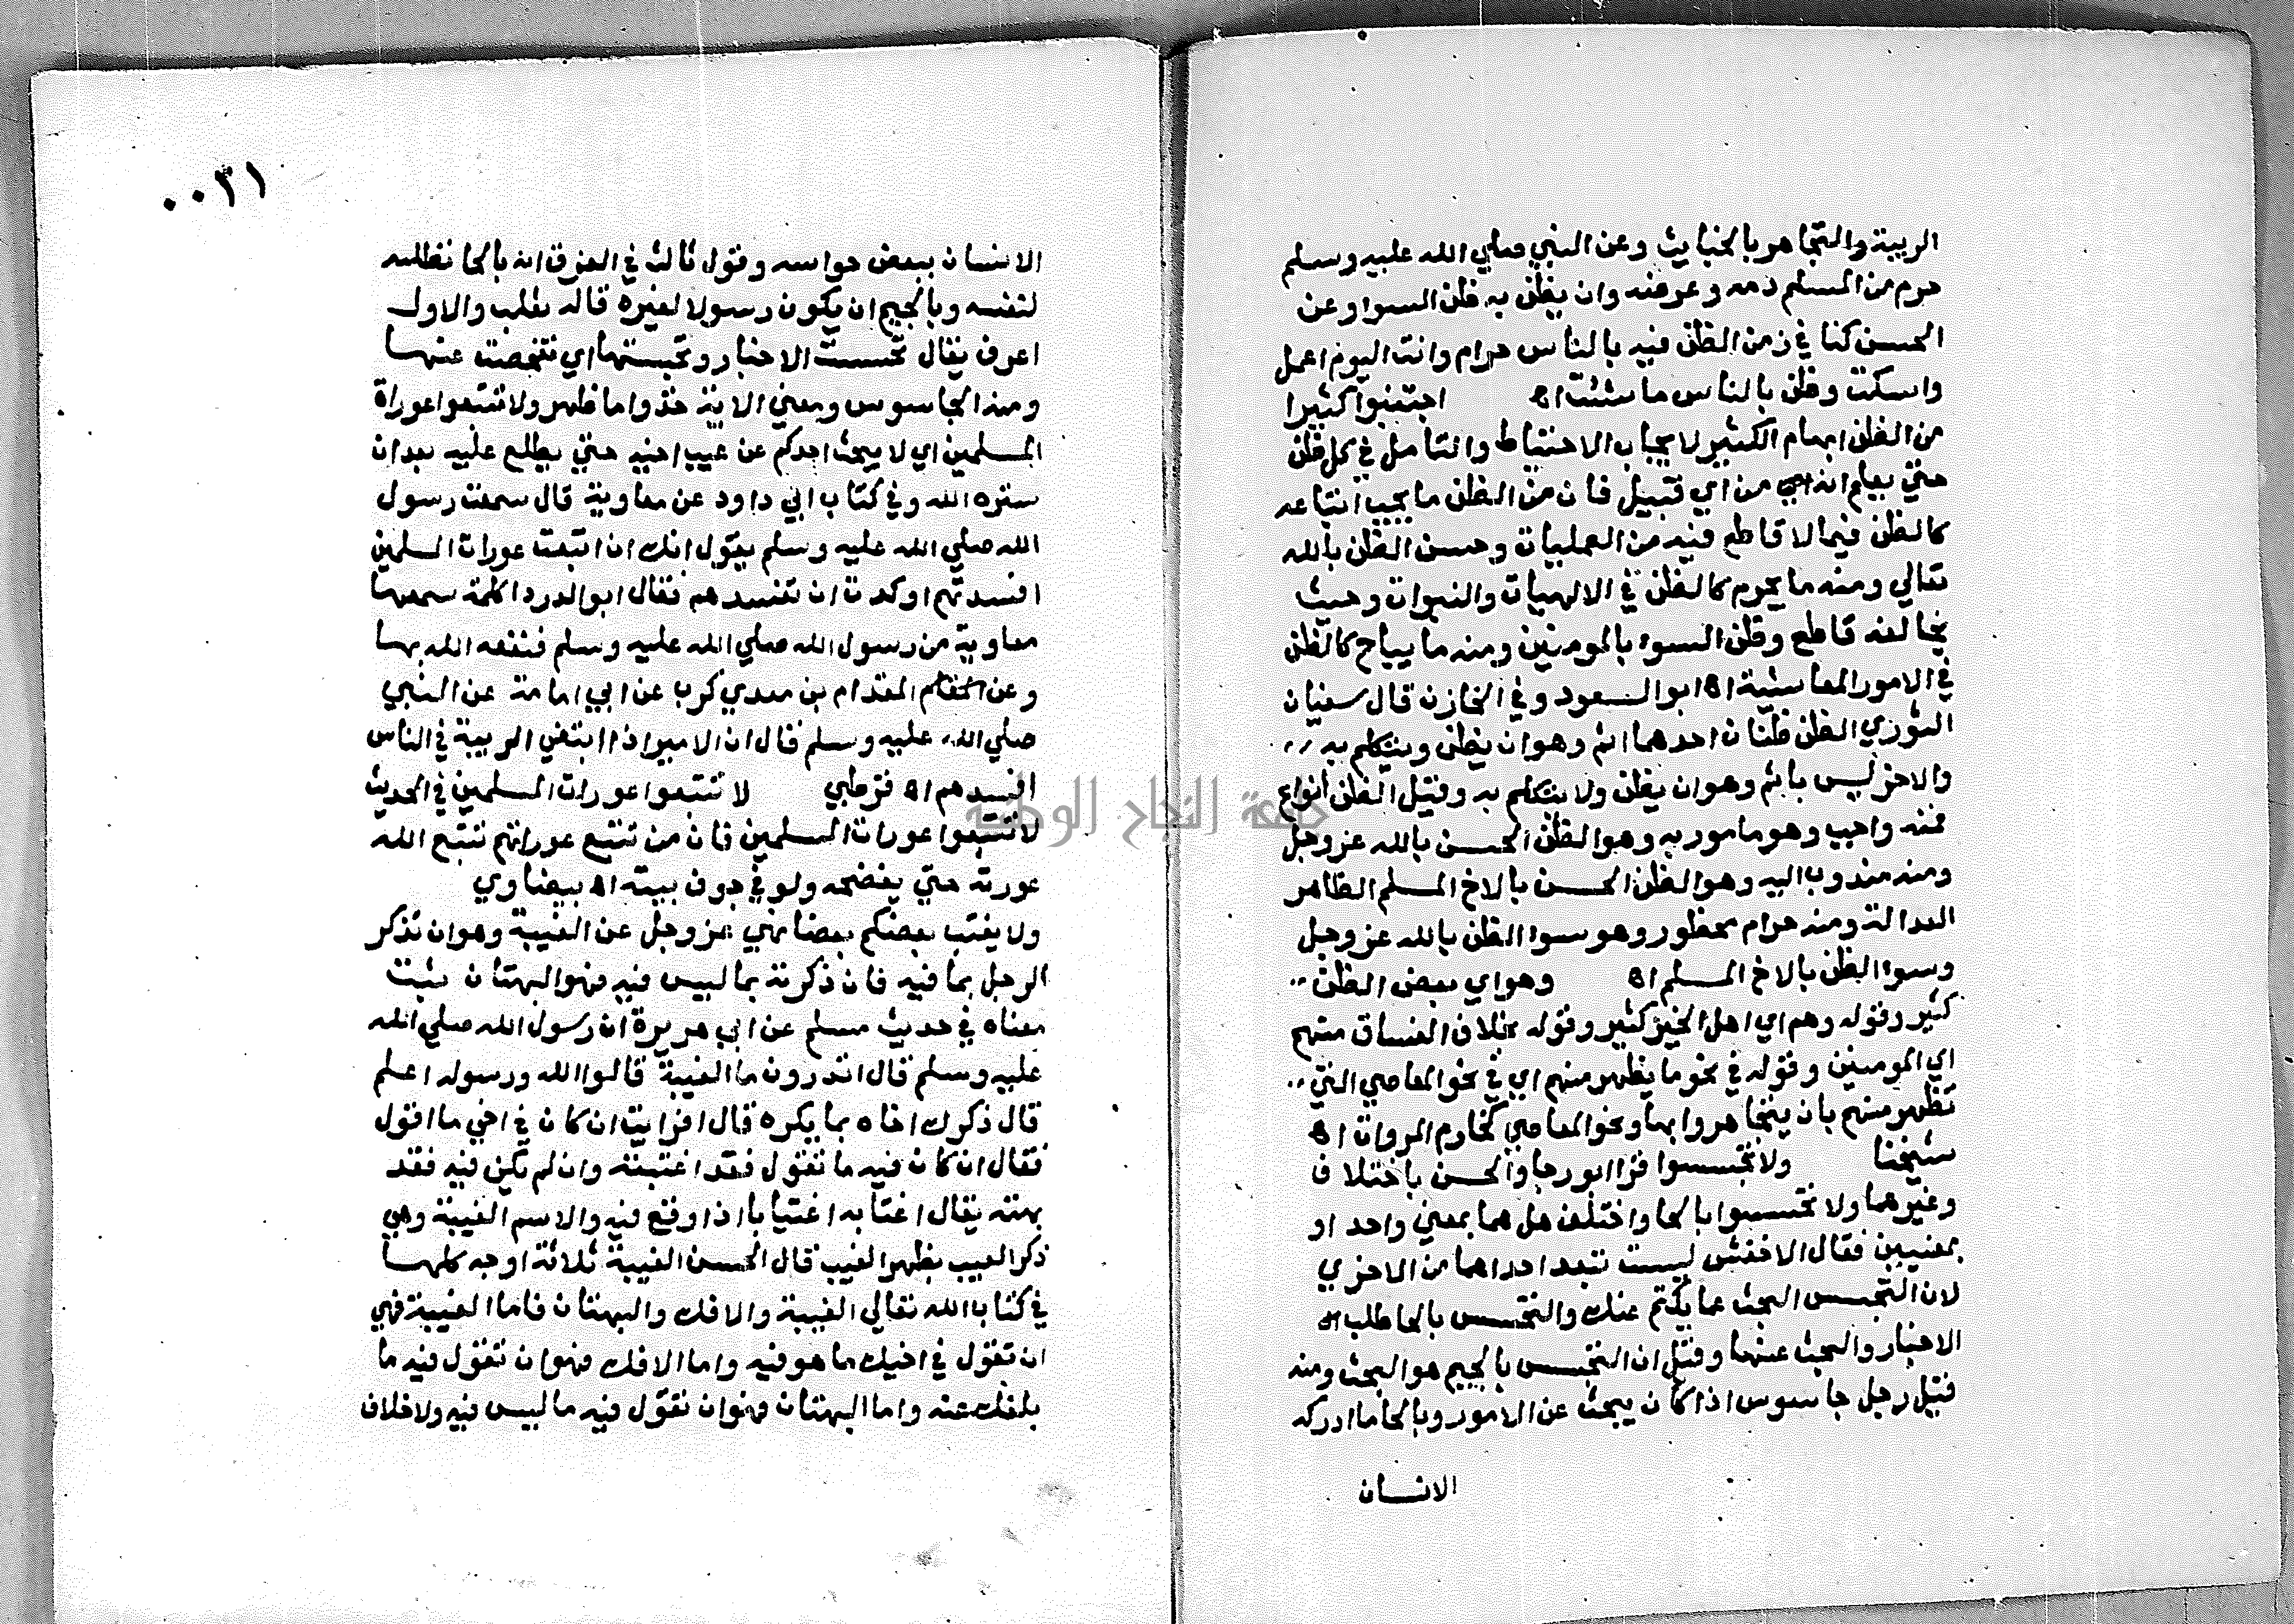 الريبة والتجاهر بالخبايث وعن النبي صلي الله عليه وسلم
حرم من المسلم دمه وعرضه وان يظن به ظن السوا وعن
الحسن كنا في زمن الظن فيه بالناس حرام وانت اليوم اعمل
واسكت وظن بالناس ما شئت اه اجتنبوا كثيرا
من الظن ابهام الكثير لايجاب الاحتياط والتامل في كل ظن
حتي يعلم انه من اي قبيل فان من الظن ما يجب اتباعه
كالظن فيما لا قاطع فيه من العمليات وحسن الظن بالله
تعالي ومنه ما يحرم كالظن في الالهيات والنبوات وحيث
يخالفه قاطع وظن السوء بالمومنين ومنه ما يباح كالظن
في الامور المعاشية اه ابو السعود وفي الخازن قال سفيان
الثوري الظن ظنان احدهما اثم وهو ان يظن ويتكلم به
والاخر ليس باثم وهو ان يظن ولا يتكلم به وقيل الظن انواع
فمنه واجب وهو مامور به وهو الظن الحسن بالله عز وجل
ومنه مندوب اليه وهو الظن الحسن بالاخ المسلم الظاهر
العدالة ومنه حرام محظور وهو سوا الظن بالله عز وجل
وسوا الظن بالاخ المسلم اه وهو اي بعض الظن
كثير وقوله وهم اي اهل الخير كثير وقوله بخلاف الفساق منهم
اي المومنين وقوله في نحو ما يظهر منهم اي في نحو المعاصي التي
تظهر منهم بان يتجاهروا بها ونحو المعاصي كخارم المروات اه
شيخنا ولا تجسسوا قرا ابو رجا والحسن باختلاف
وغيرهما ولا تحسسوا بالحا واختلف هل هما بمعني واحد او
بمعنيين فقال الاخفش ليست تبعد احداهما من الاخري
لان التجسس البحث عما يكتم عنك والتحسس بالحا طلب
الاخبار والبحث عنها وقيل ان التجسس بالجيم هو البحث ومنه
قيل رجل جاسوس اذا كان يبحث عن الامور وبالحا ما ادركه
الانسان
٠٠٣١
الانسان ببعض حواسه وقول ثالث في الفرق انه بالحا تطلبه
لنفسه وبالجيم ان يكون رسولا لغيره قاله ثعلب والاول
اعرف يقال تحسست الاخبار وتجسستها اي تفحصت عنها
ومنه الجاسوس ومعني الاية خذوا ما ظهر ولا تتبعوا عوراة
المسلمين اي لا يبحث احدكم عن عيب اخيه حتي يطلع عليه بعد ان
ستره الله وفي كتاب ابي داود عن معاوية قال سمعت رسول
الله صلي الله عليه وسلم يقول انك ان اتبعت عورات المسلمين
افسدتهم او كدت ان تفسدهم فقال ابو الدردا كلمة سمعها
معاوية من رسول الله صلي الله عليه وسلم فنفعه الله بها
وعن المقدام بن معدي كرب عن ابي امامة عن النبي
صلي الله عليه وسلم قال ان الامير اذا ابتغي الريبة في الناس
افسدهم اه قرطبي لا تتبعوا عورات المسلمين في الحديث
لا تتبعوا عورات المسلمين فان من تتبع عوراتهم تتبع الله
عورته حتي يفضحه ولو في جوف بيته اه بيضاوي
ولا يغتب بعضكم بعضا نهي عز وجل عن الغيبة وهو ان تذكر
الرجل بما فيه فان ذكرته بما ليس فيه فهو البهتان ثبت
معناه في حديث مسلم عن ابي هريرة ان رسول الله صلي الله
عليه وسلم قال اتدرون ما الغيبة قالوا الله ورسوله اعلم
قال ذكرك اخاه بما يكره قال افرايت ان كان في اخي ما اقول
فقال ان كان فيه ما تقول فقد اغتبته وان لم يكن فيه فقد
بهته يقال اغتابه اغتيابا اذا وقع فيه والاسم الغيبة وهي
ذكر العيب بظهر الغيب قال الحسن الغيبة ثلاثة اوجه كلها
في كتاب الله تعالي الغيبة والافك والبهتان فاما الغيبة فهي
ان تقول في اخيك ما هو فيه واما الافك فهو ان تقول فيه ما
بلغك عنه واما البهتان فهو ان تقول فيه ما ليس فيه ولا خلاف
جامعة النجاح الوطنية